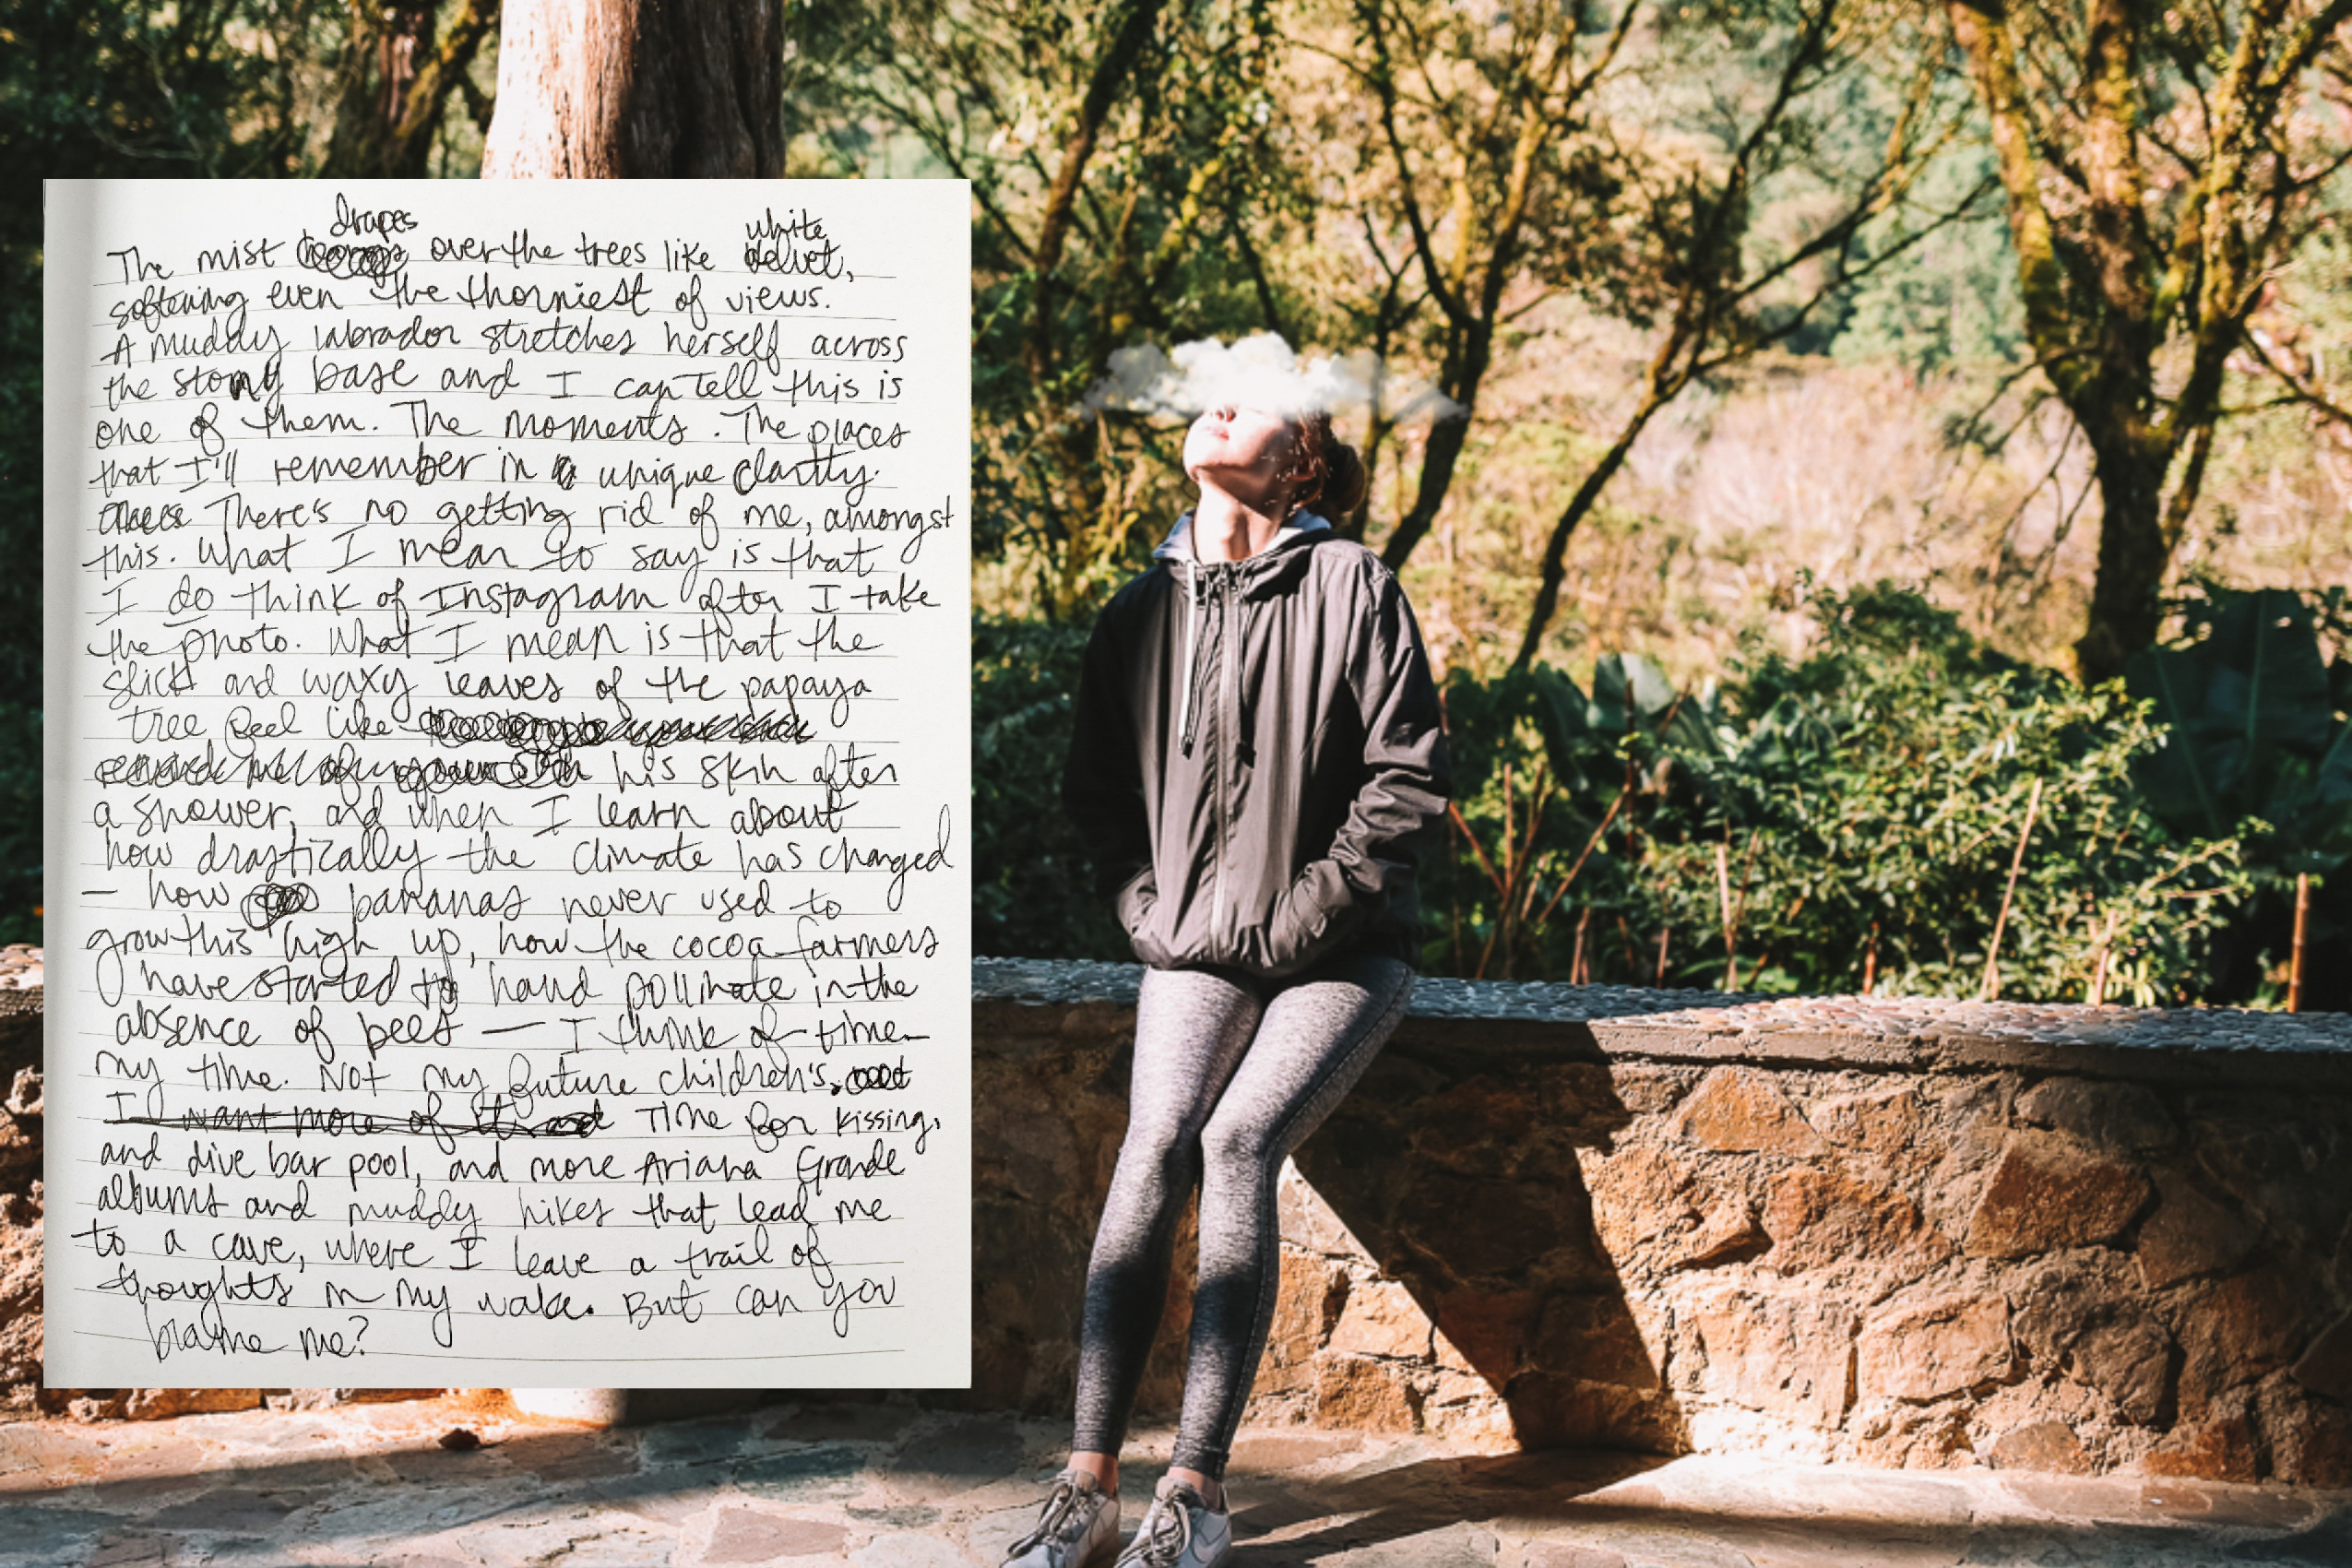 drapes white
The mist over the trees like velvet,
softening even the thorniest of views.
A muddy labrador stretches herself across
the stony base and I can tell this is
one of them. The moments. The places
that I'll remember in unique clarity.
There's no getting rid of me, amongst
this. What I mean to say is that
I do think of Instagram after I take
the photo. What I mean is that the
slick and waxy leaves of the papaya
tree feel like
his skin after
a shower, and when I learn about
how drastically the climate has changed
— how bananas never used to
grow this high up, how the cocoa farmers
have started to hand pollinate in the
absence of bees — I think of time –
my time. Not my future children's.
I want more of it and Time for kissing,
and dive bar pool, and more Ariana Grande
albums and muddy hikes that lead me
to a cave, where I leave a trail of
thoughts in my wake. But can you
blame me?